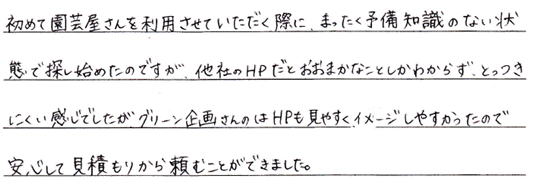 初めて園芸屋さんを利用させていただく際に、まったく予備知識のない状
態で探し始めたのですが、他社のHPだとおおまかなことしかわからず、とっつき
にくい感じでしたがグリーン企画さんのはHPも見やすくイメージしやすかったので
安心して見積もりから頼むことができました。